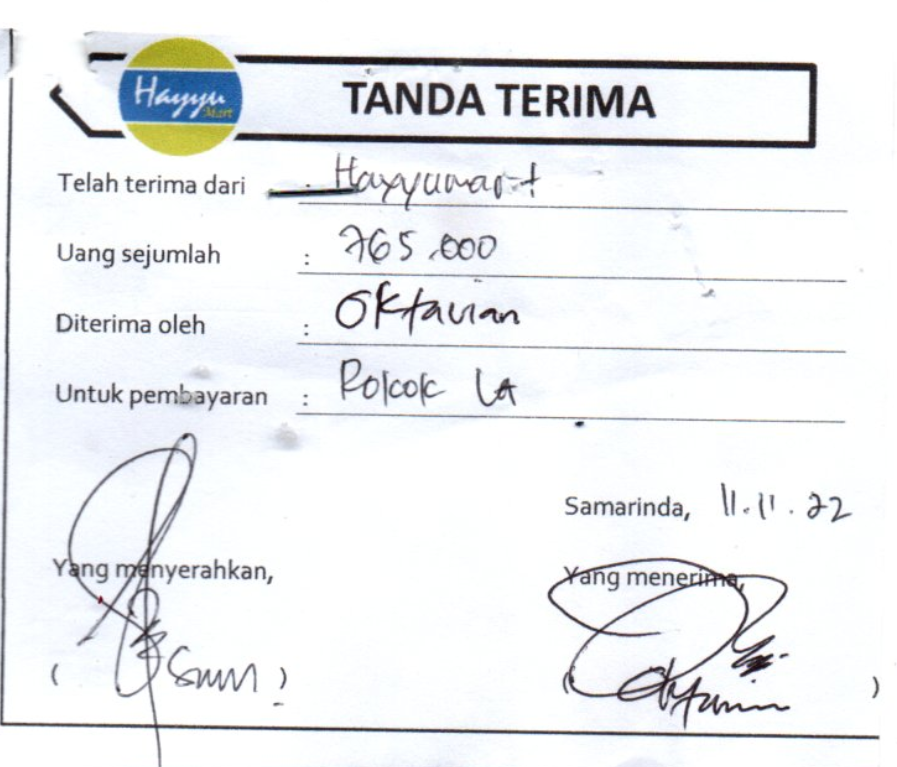 Hayyu
Mart
TANDA TERIMA
Telah terima dari Hayyumart
Uang sejumlah : 765.000
Diterima oleh : Oktavian
Untuk pembayaran : Rokok LA
Samarinda, 11.11.22
Yang menyerahkan,
Yang menerima,
( )
( )